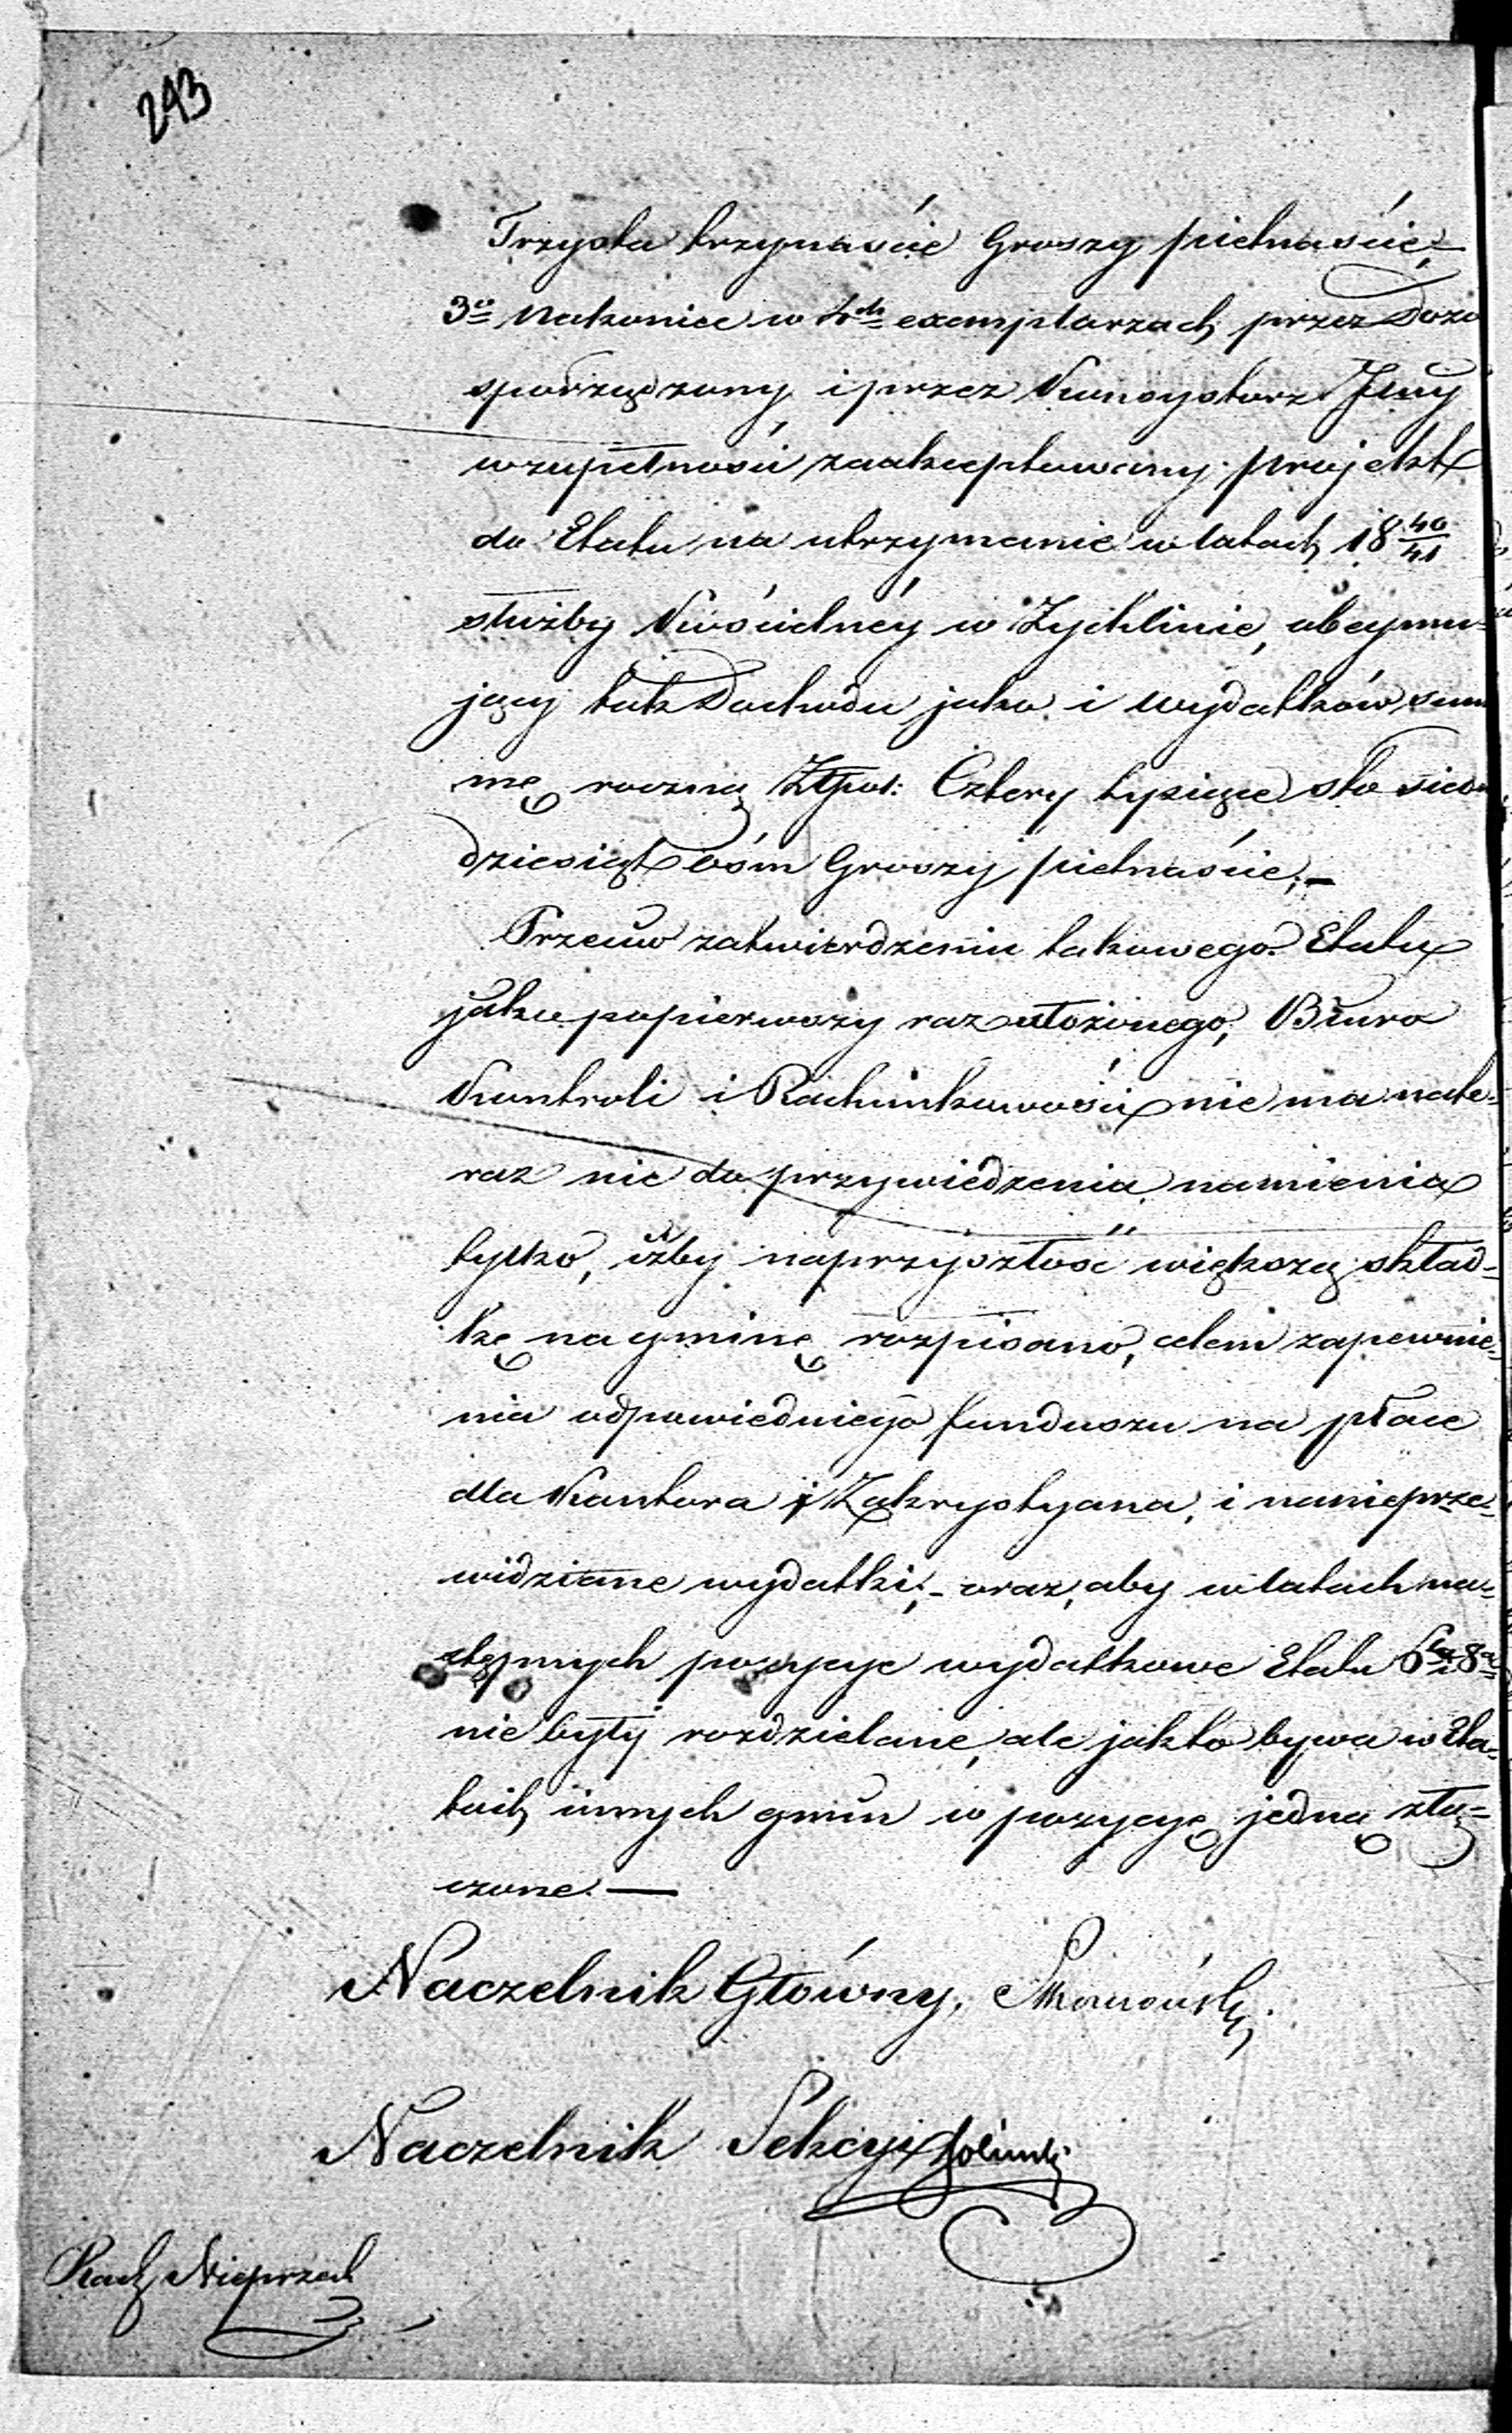 243
Trzysta trzynaście Groszy pietnaście,–
3o nakoniec w 4ch exemplarzach przez Dozo
sporządzony i przez Konsystorz Jlny
w zupełności zaakceptowany projekt
do Etatu na utrzymanie w latach 18 40/41
służby Kościelnéy w Żychlinie, obeymu-
jący tak Dochodu jako i wydatków sum
mę roczną Złpol: Cztery tysiące sto siedm
dziesiąt ośm Groszy pietnaście.–
Przeciw zatwierdzeniu takowego Etatu
jako popierwszy raz ułożonego, Biuro
Kontroli i Rachunkowości nie ma nate-
raz nic do przywiedzenia namienia
tylko, iżby naprzyszłość większą skład-
kę na gminę rozpisano, celem zapewnie-
nia odpowiedniego funduszu na płace
dla Kantora i Zakrystyana, i na nieprze-
widziane wydatki;– oraz, aby w latach na-
stępnych pozycye wydatkowe Etatu 6ta i 8a
nie były rozdzielane, ale jak to bywa w Eta-
tach innych gmin w pozycyę jedną złą-
czone.—
Naczelnik Główny,
Naczelnik Sekcyi
Rach Nieprzech